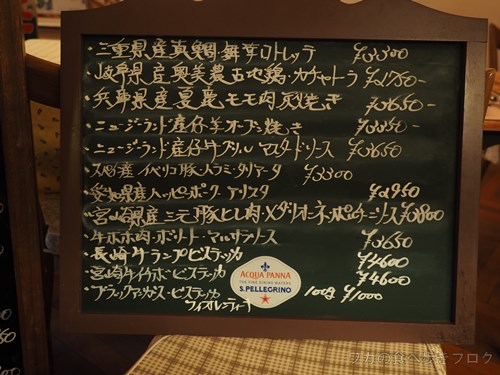 ・三重県産真鯛・舞茸ロトレッラ ¥3300
・岐阜県産奥美濃古地鶏・カチャトーラ ¥2750-
・兵庫県産夏鹿モモ肉炭焼き ¥3650-
・ニュージーランド産仔羊オーブン焼き ¥3350-
・ニュージーランド産仔牛グリル マスタードソース ¥3650
・スペイン産 イベリコ豚・トラミ・タリアータ ¥3300
・愛知県産ハッピーポーク・アリスタ ¥2950
・宮崎県産三元豚ヒレ肉・メダリオーネ・ポルチーニソース ¥3800
・牛ホホ肉・ボリート・マルサラソース ¥3650
・長崎牛ランプビステッカ ¥4600
・宮崎牛イチボ・ビステッカ ¥4600
・ブラックアンガス・ビステッカ 100g ¥1000
フィオレンティーナ
ACQUA PANNA
THE FINE DINING WATERS
S.PELLEGRINO